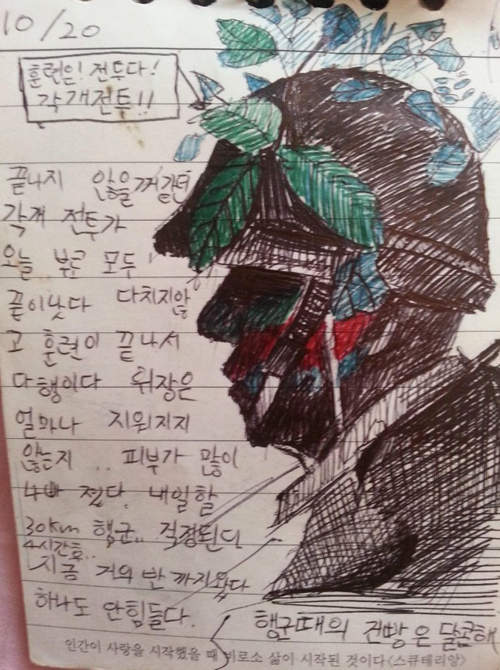 10/20
훈련은! 전투다!
각개전투!!
끝나지 않을꺼같던
각개 전투가
오늘 부로 모두
끝이낫다 다치지않
고 훈련이 끝나서
다행이다 위장은
얼마나 지워지지
않는지 .. 피부가 많이
졌다. 내일할
30km 행군.. 걱정된다
4시간후..
지금 거의 반 까지왔다
하나도 안힘들다.
행군때의 건빵은 달콤해
인간이 사랑을 시작했을 때 비로소 삶이 시작된 것이다<스퀴테리앙>